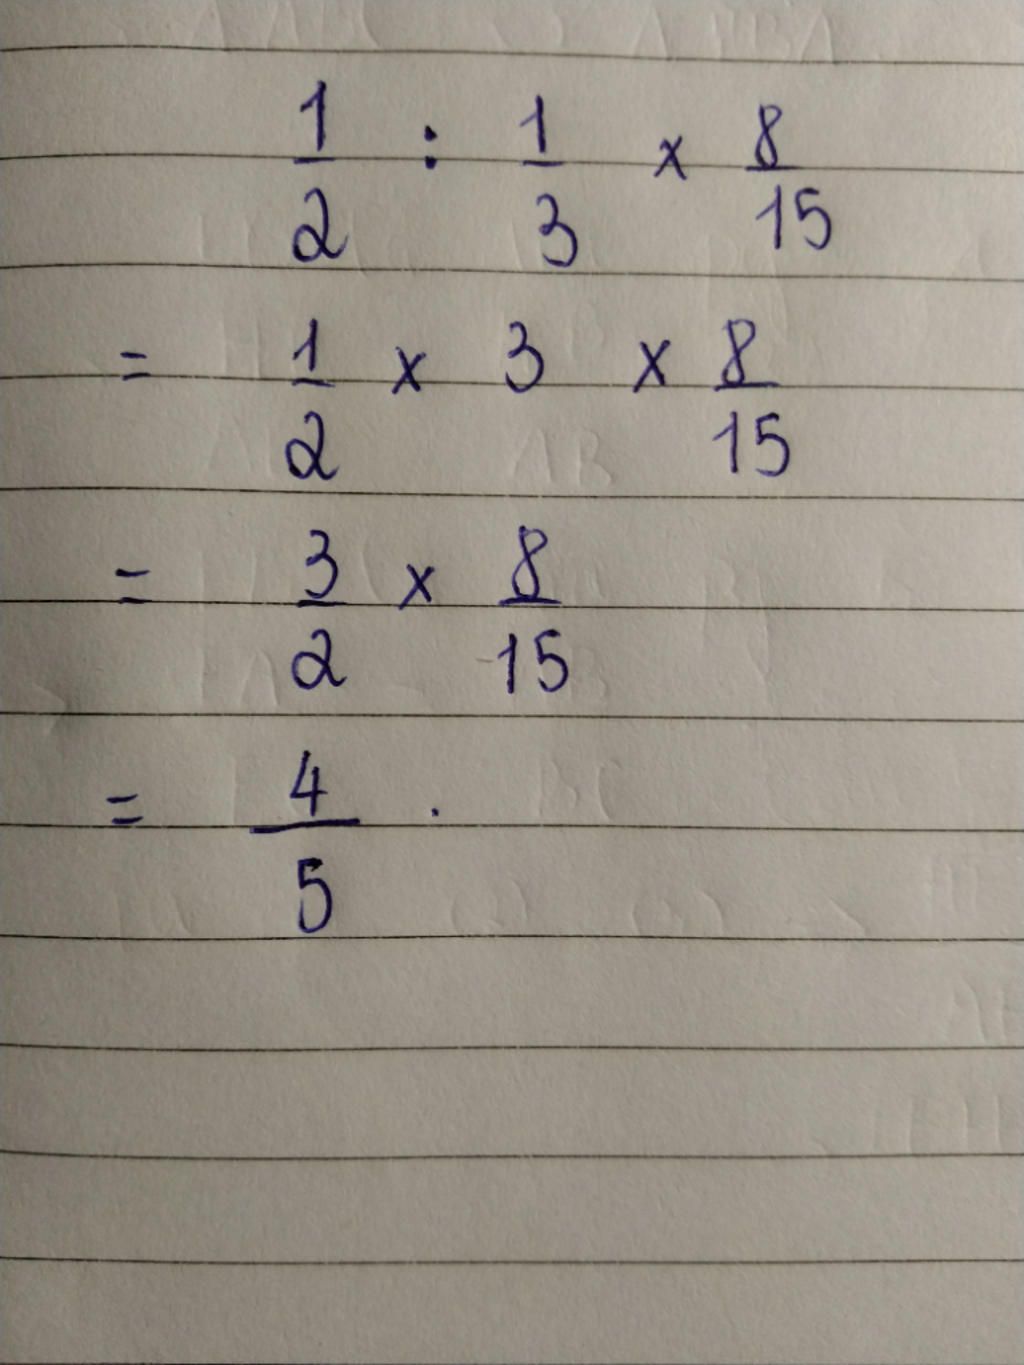 1/2 : 1/3 x 8/15
= 1/2 x 3 x 8/15
= 3/2 x 8/15
= 4/5 .